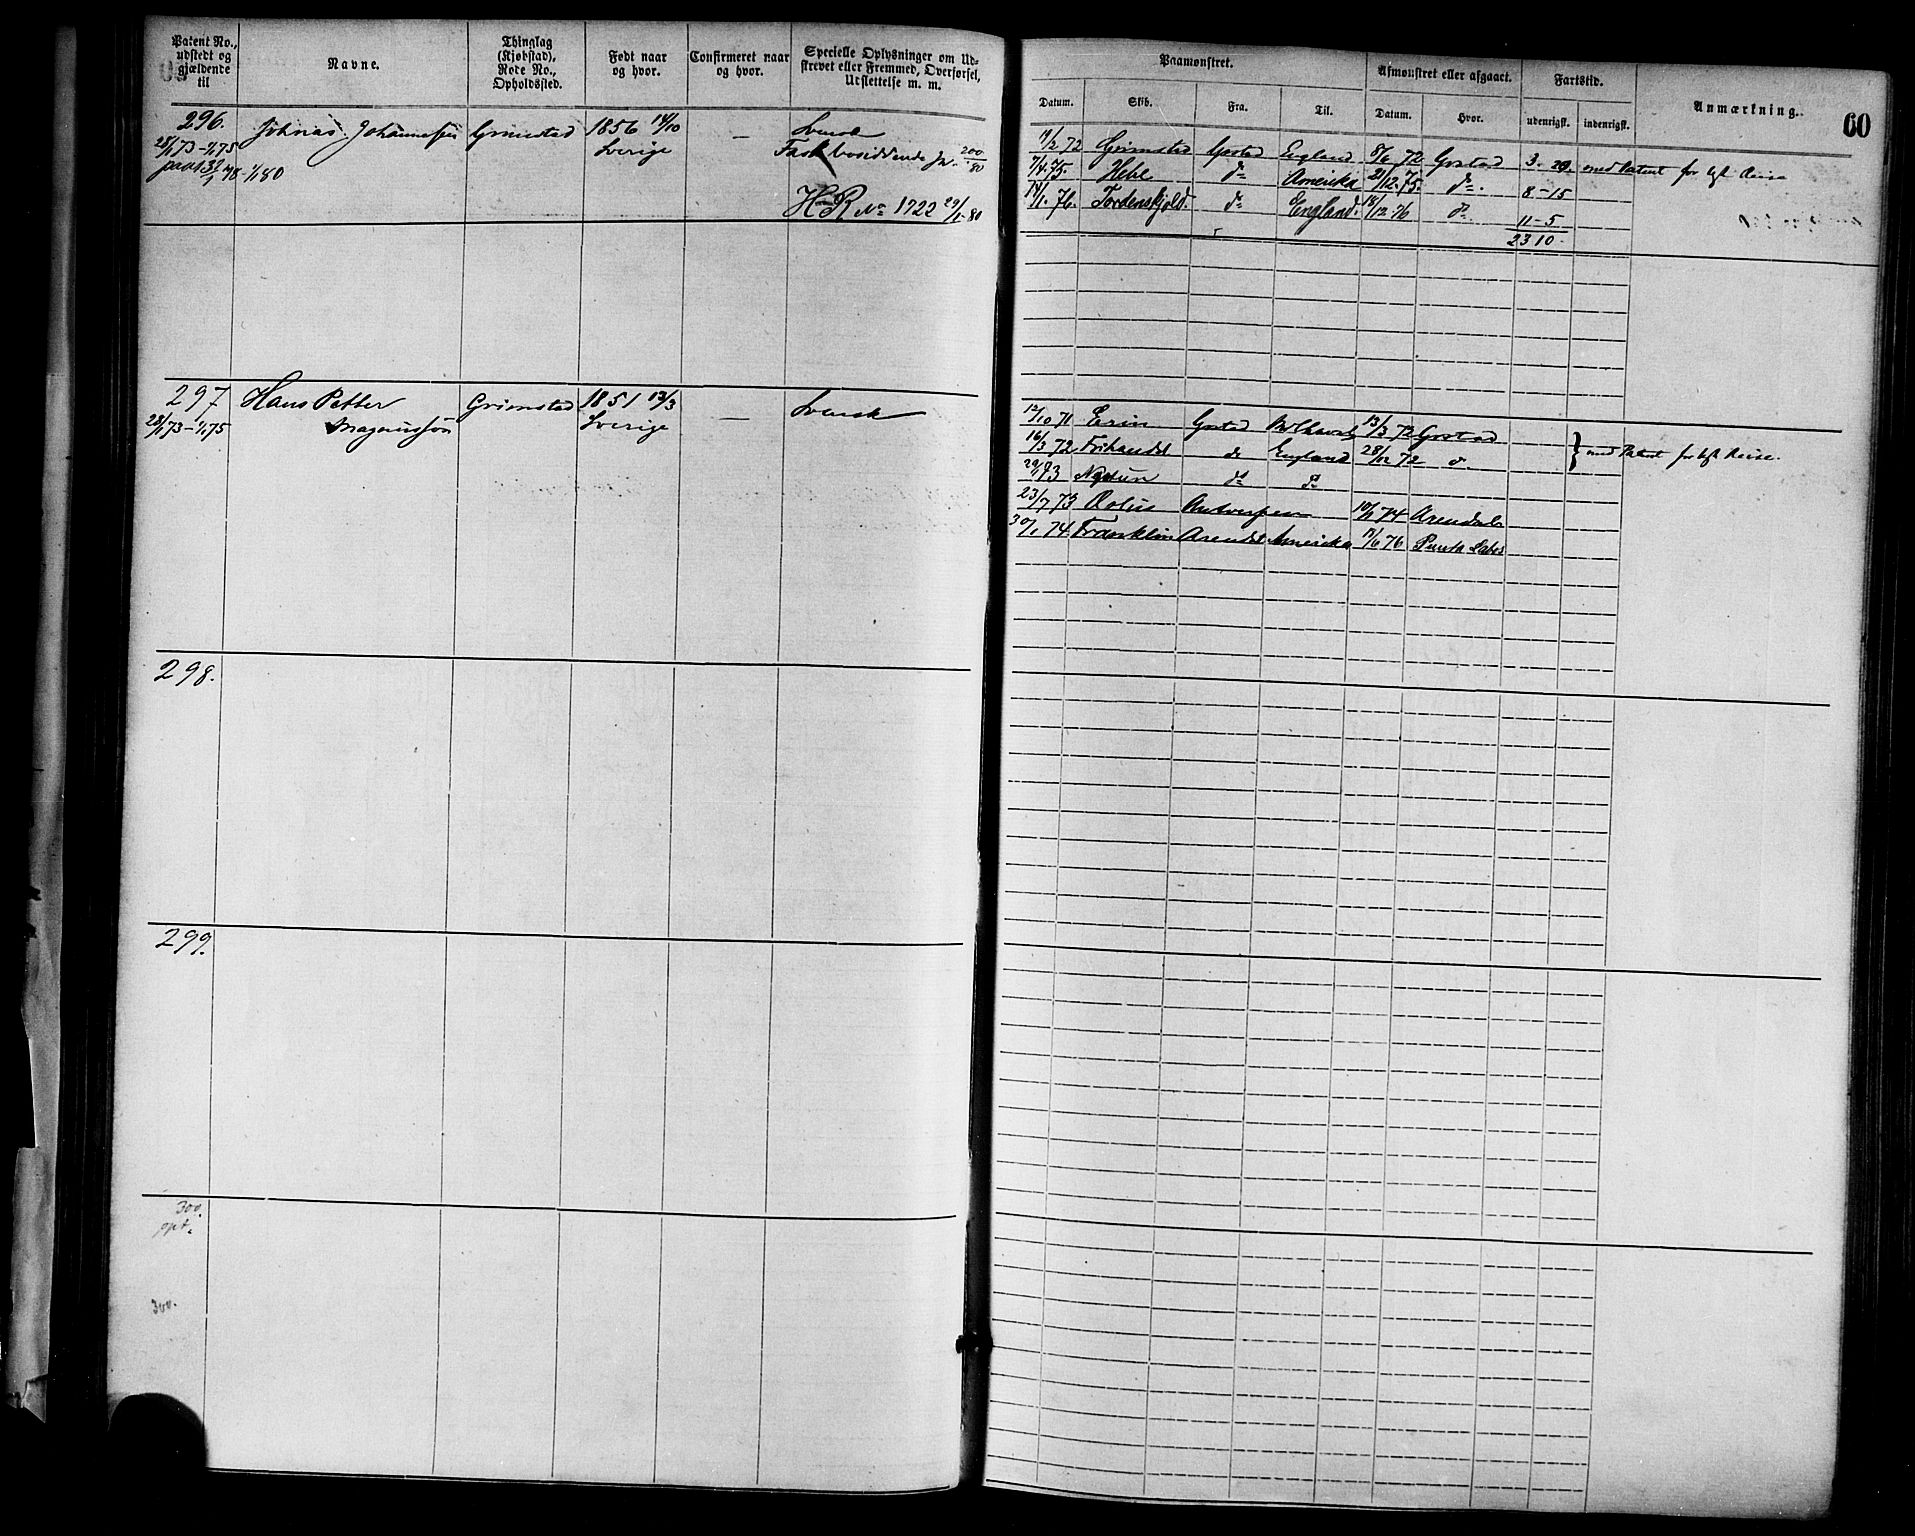 Patent No., udstedt og gjældende til
Navne.
Thinglag (Kjøbstad), Rode No., Opholdssted.
Født naar og hvor.
Confirmeret naar og hvor.
Specielle Oplysninger om Udskrevet eller Fremmed, Overførsel, Udslettelse m. m.
Paamønstret.
Afmønstret eller afgaaet.
Fartstid.
Anmærkning.
60
Datum.
Skib.
Fra.
Til.
Datum.
Hvor.
udenrigsk.
indenrigsk.
296. Johnas Johannessen Grimstad 1856 14/10 — Svensk
28/1 73 - 1/1 75 Sverige Fast bosiddende
- 1/1 80
H R No 1722 29/1 80
19/2 72 Grimstad Grstad England 8/6 72 Grstad 3. 29. med Patent for
7/4 75. Hebe do Amerika 21/12 75. do. 8 - 15
14/1. 76. Tordenskjold. do England. 18/12 76 do 11 - 5
23 10
297 Hans Petter Grimstad 1851 13/3 — Svensk
28/1 73 - 1/1 75 Magnussøn Sverige
12/10 71 Erin Grstad 13/3 72 Grstad
16/3 72 Frihandel do England 28/12 72 do } med Patent for Reise.
29/1 73 Neptun do do
23/7 73 Rolus Antwerpen 10/1 74 Arendal
30/1 74. Franklin Arendal Amerika 17/6 76 Punta
298.
299.
300.
opt.
300.